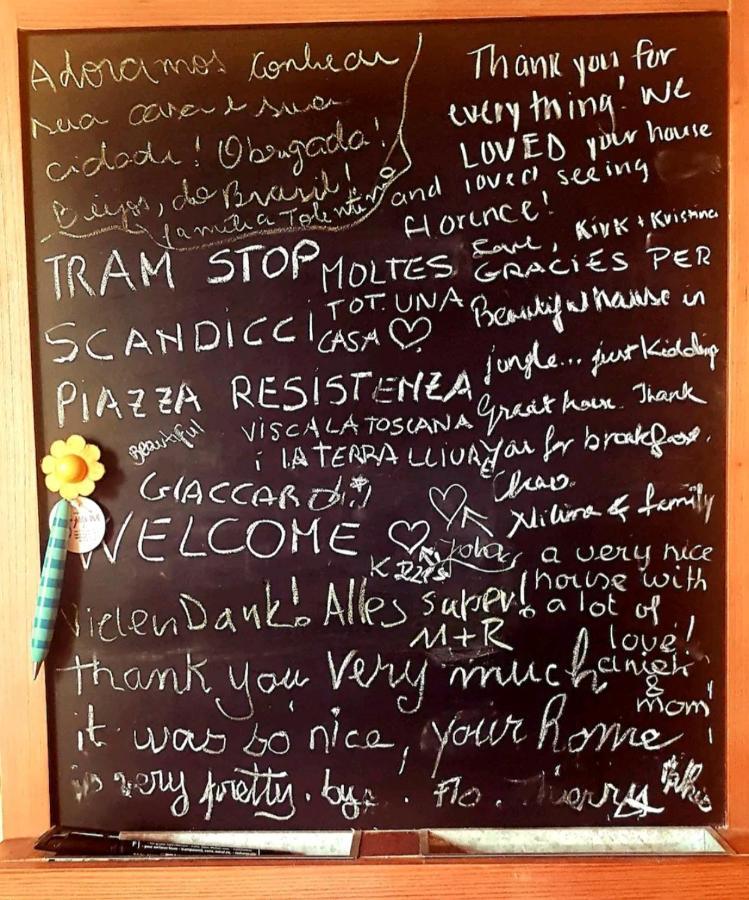 Adoramos conhecer
sua casa e sua
cidade! Obrigada!
Beijos, do Brasil!
família Tolentino
Thank you for
everything! We
LOVED your house
and loved seeing
florence!
Kirk + Kristina
TRAM STOP
SCANDICCI
PIAZZA RESISTENZA
MOLTES GRACIES PER
TOT. UNA
CASA ♡
VISCA LA TOSCANA
i LA TERRA LLIURE
Beautiful house in
jungle... just kidding
Great house. Thank
you for breakfast.
Chao.
& family
Beautiful
GIACCAR
WELCOME
a very nice
house with
a lot of
love!
&
mom
Vielen Dank! Alles super!
M+R
thank you very much
it was so nice, your home
is very pretty. by. Flo. Thierry